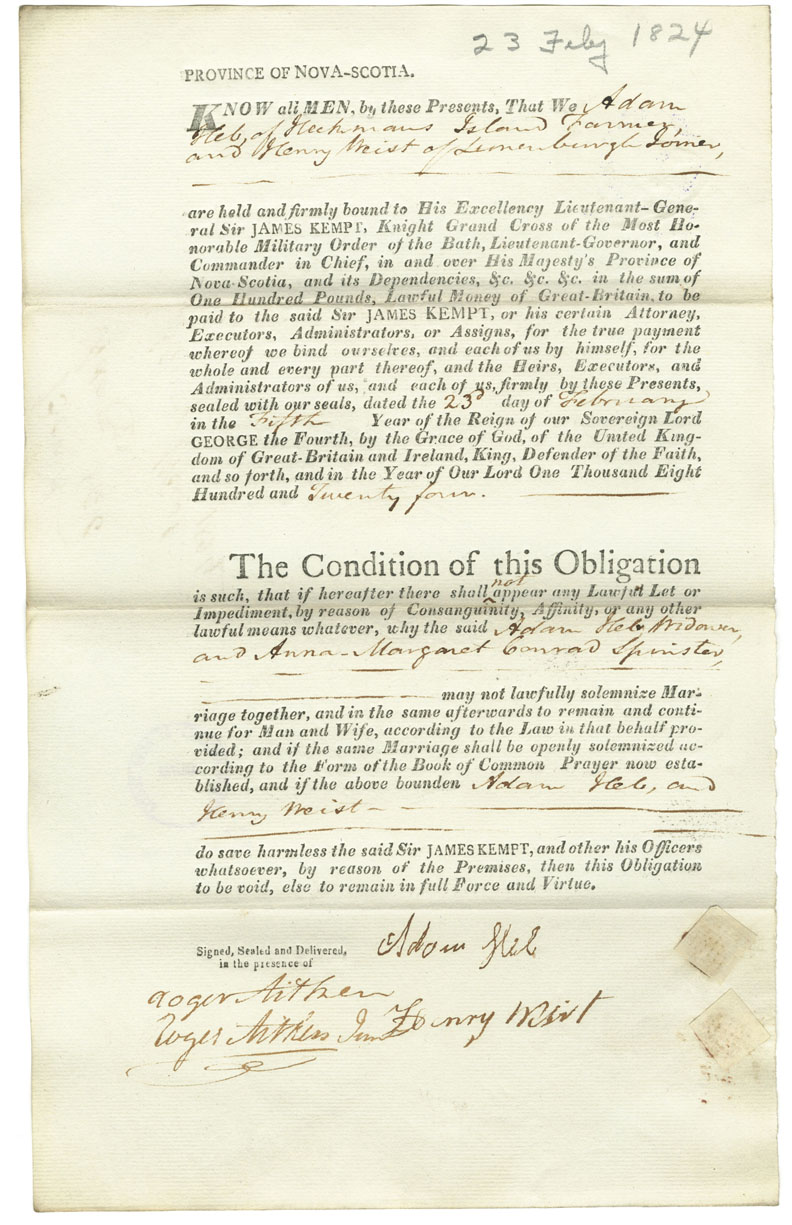 23 Feby 1824
PROVINCE OF NOVA-SCOTIA.
KNOW all MEN, by these Presents, That We Adam
Heb, of Heckmans Island Farmer,
and Henry Weist of Lunenburgh Joiner,
are held and firmly bound to His Excellency Lieutenant-Gene-
ral Sir JAMES KEMPT, Knight Grand Cross of the Most Ho-
norable Military Order of the Bath, Lieutenant-Governor, and
Commander in Chief, in and over His Majesty's Province of
Nova-Scotia, and its Dependencies, &c. &c. &c. in the sum of
One Hundred Pounds, Lawful Money of Great-Britain, to be
paid to the said Sir JAMES KEMPT, or his certain Attorney,
Executors, Administrators, or Assigns, for the true payment
whereof we bind ourselves, and each of us by himself, for the
whole and every part thereof, and the Heirs, Executors, and
Administrators of us, and each of us, firmly by these Presents,
sealed with our seals, dated the 23d day of February
in the Fifth Year of the Reign of our Sovereign Lord
GEORGE the Fourth, by the Grace of God, of the United King-
dom of Great-Britain and Ireland, King, Defender of the Faith,
and so forth, and in the Year of Our Lord One Thousand Eight
Hundred and Twenty four.
The Condition of this Obligation
is such, that if hereafter there shall not appear any Lawful Let or
Impediment, by reason of Consanguinity, Affinity, or any other
lawful means whatever, why the said Adam Heb Widower,
and Anna-Margaret Conrad Spinster,
may not lawfully solemnize Mar-
riage together, and in the same afterwards to remain and conti-
nue for Man and Wife, according to the Law in that behalf pro-
vided; and if the same Marriage shall be openly solemnized ac-
cording to the Form of the Book of Common Prayer now esta-
blished, and if the above bounden Adam Heb, and
Henry Weist
do save harmless the said Sir JAMES KEMPT, and other his Officers
whatsoever, by reason of the Premises, then this Obligation
to be void, else to remain in full Force and Virtue.
Signed, Sealed and Delivered,
in the presence of
Adam Heb
Roger Aitken
Roger Aitken Junr
Henry Wist